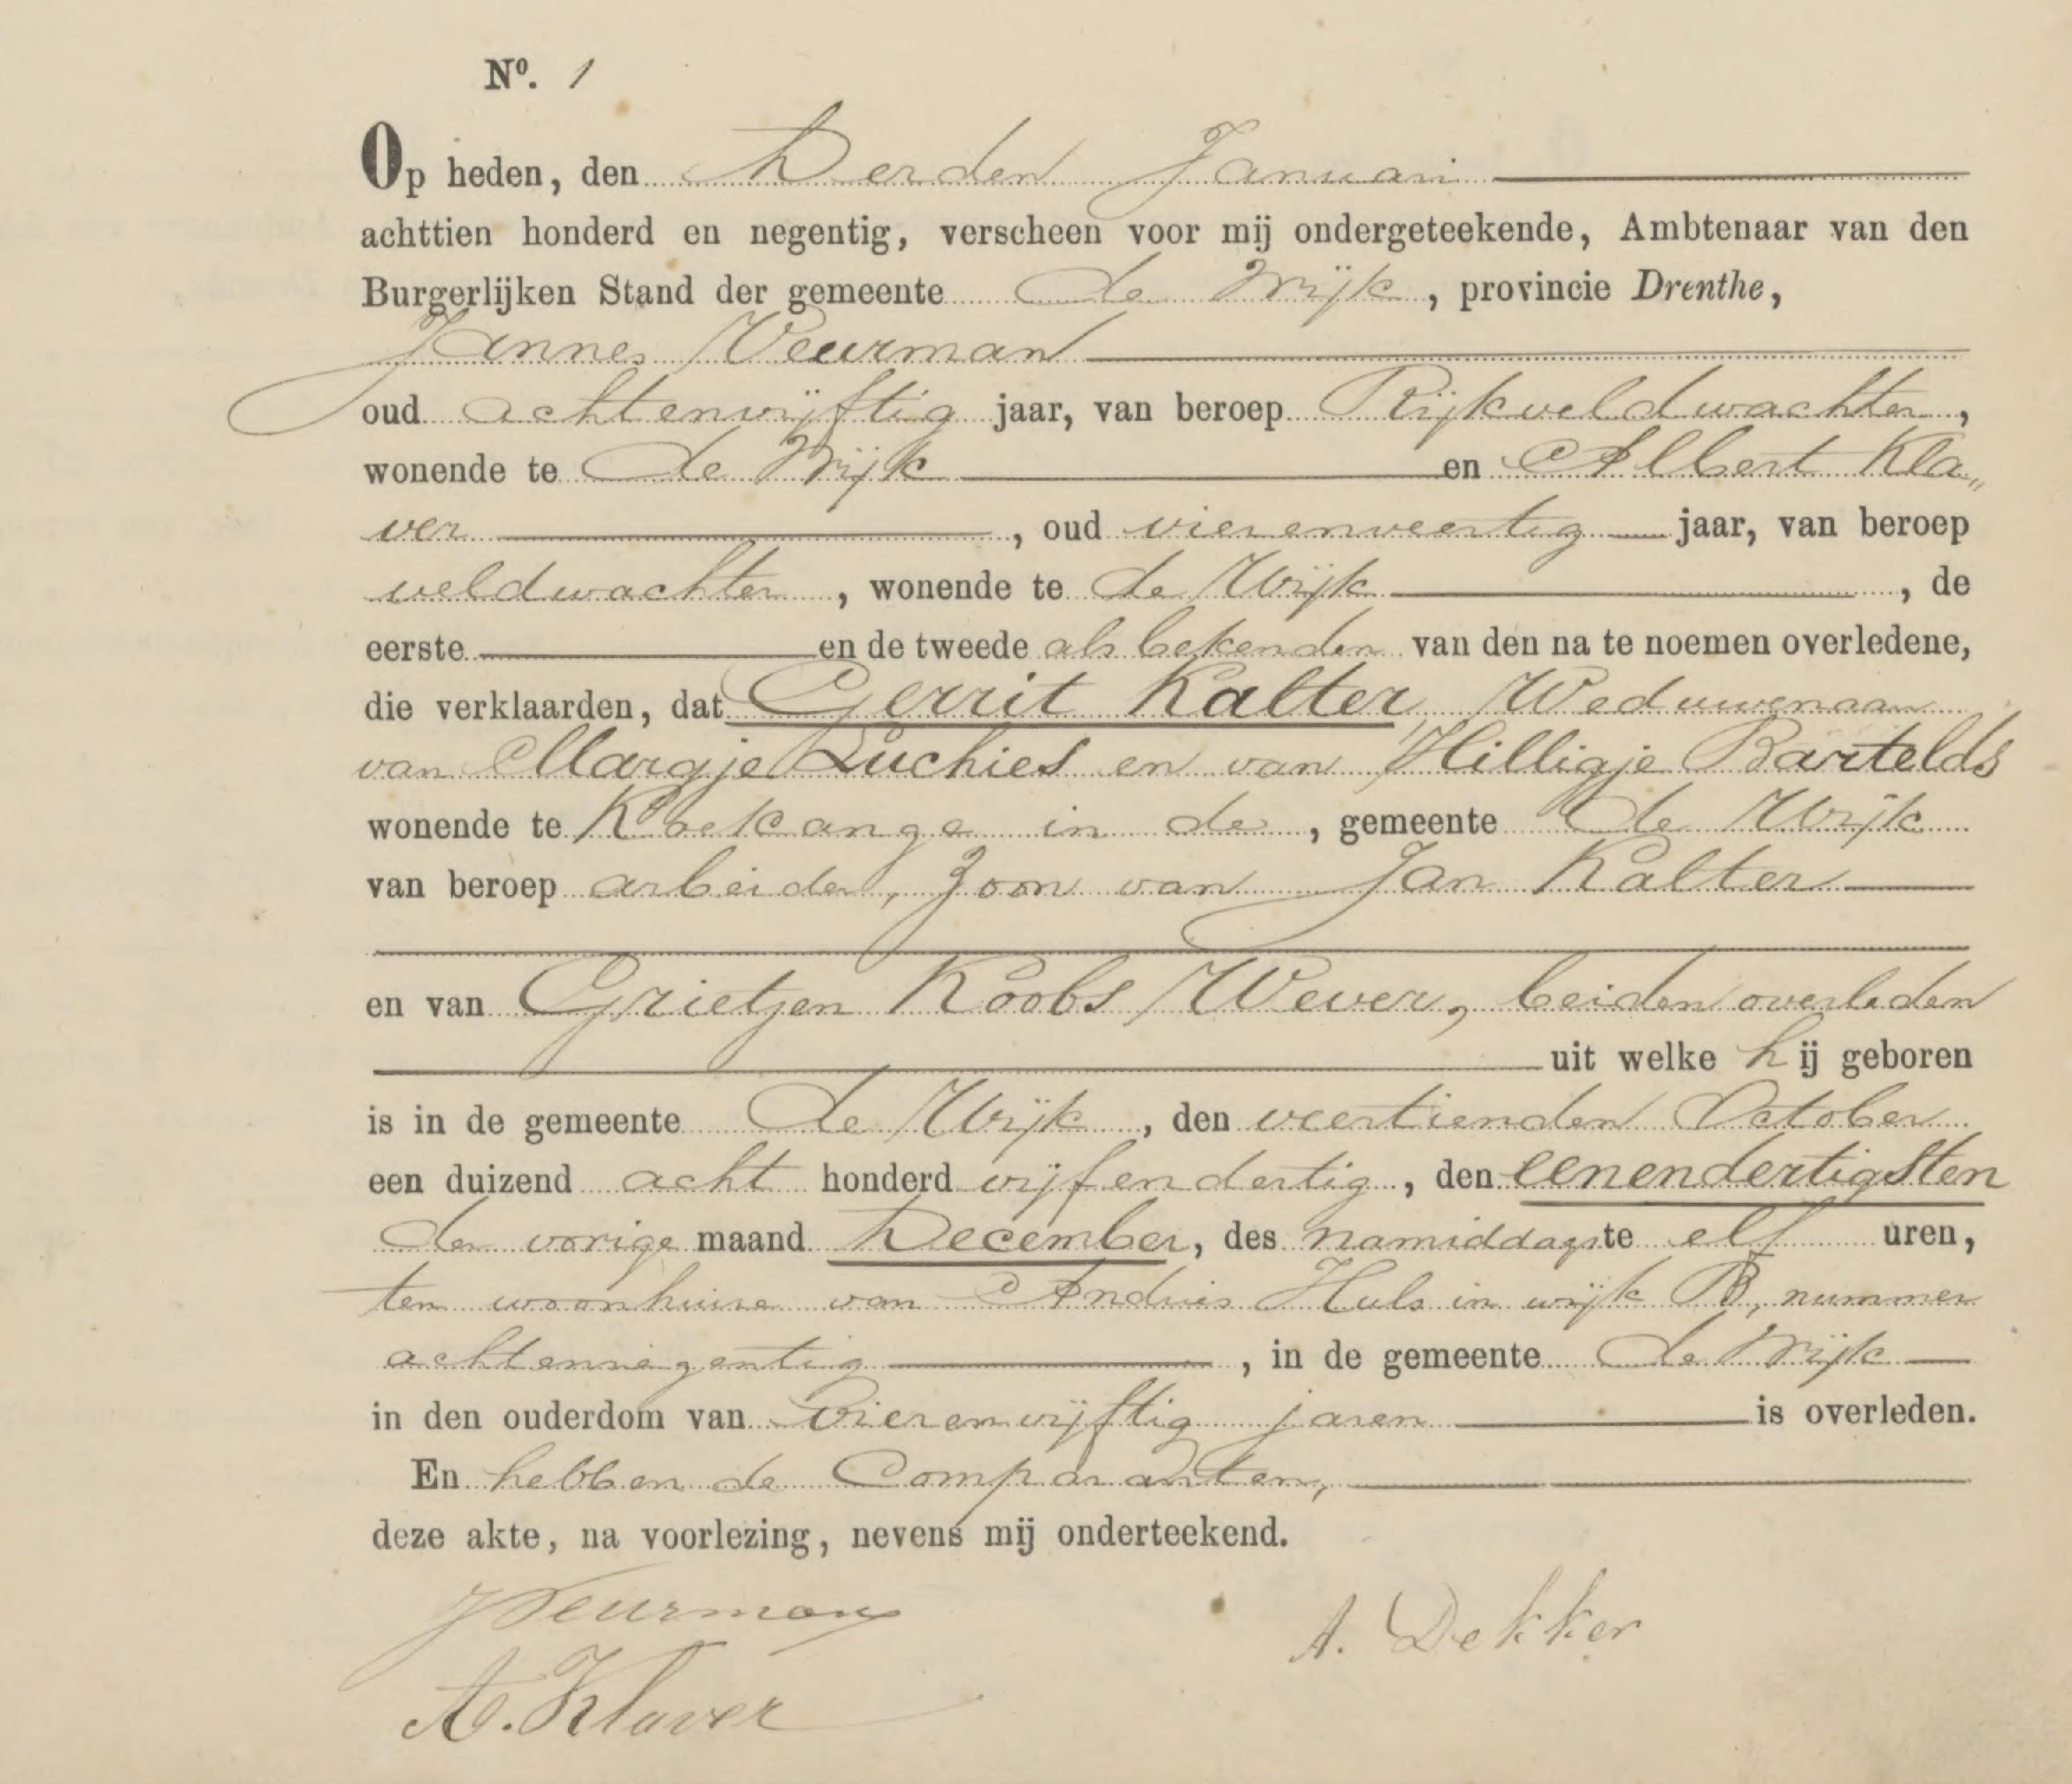 Nº. 1
Op heden, den Derden Januari
achttien honderd en negentig, verscheen voor mij ondergeteekende, Ambtenaar van den
Burgerlijken Stand der gemeente de Wijk, provincie Drenthe,
Jannes Veurman
oud achtenvijftig jaar, van beroep Rijkveldwachter,
wonende te de Wijk en Albert Kla„
ver, oud vierenveertig jaar, van beroep
veldwachter, wonende te de Wijk, de
eerste en de tweede als bekenden van den na te noemen overledene,
die verklaarden, dat Gerrit Kalter, Weduwenaar
van Margje Luchies en van Hilligje Bartelds
wonende te Koekange in de, gemeente de Wijk
van beroep arbeider, Zoon van Jan Kalter
en van Grietjen Roobs Wever, beiden overleden
uit welke hij geboren
is in de gemeente de Wijk, den veertienden October
een duizend acht honderd vijfendertig, den eenendertigsten
der vorige maand December, des namiddags te elf uren,
ten woonhuise van Andries Huls in wijk B, nummer
achtennegentig, in de gemeente de Wijk
in den ouderdom van vierenvijftig jaren is overleden.
En hebben de Comparanten,
deze akte, na voorlezing, nevens mij onderteekend.
J Veurman
A. Dekker
A. Klaver